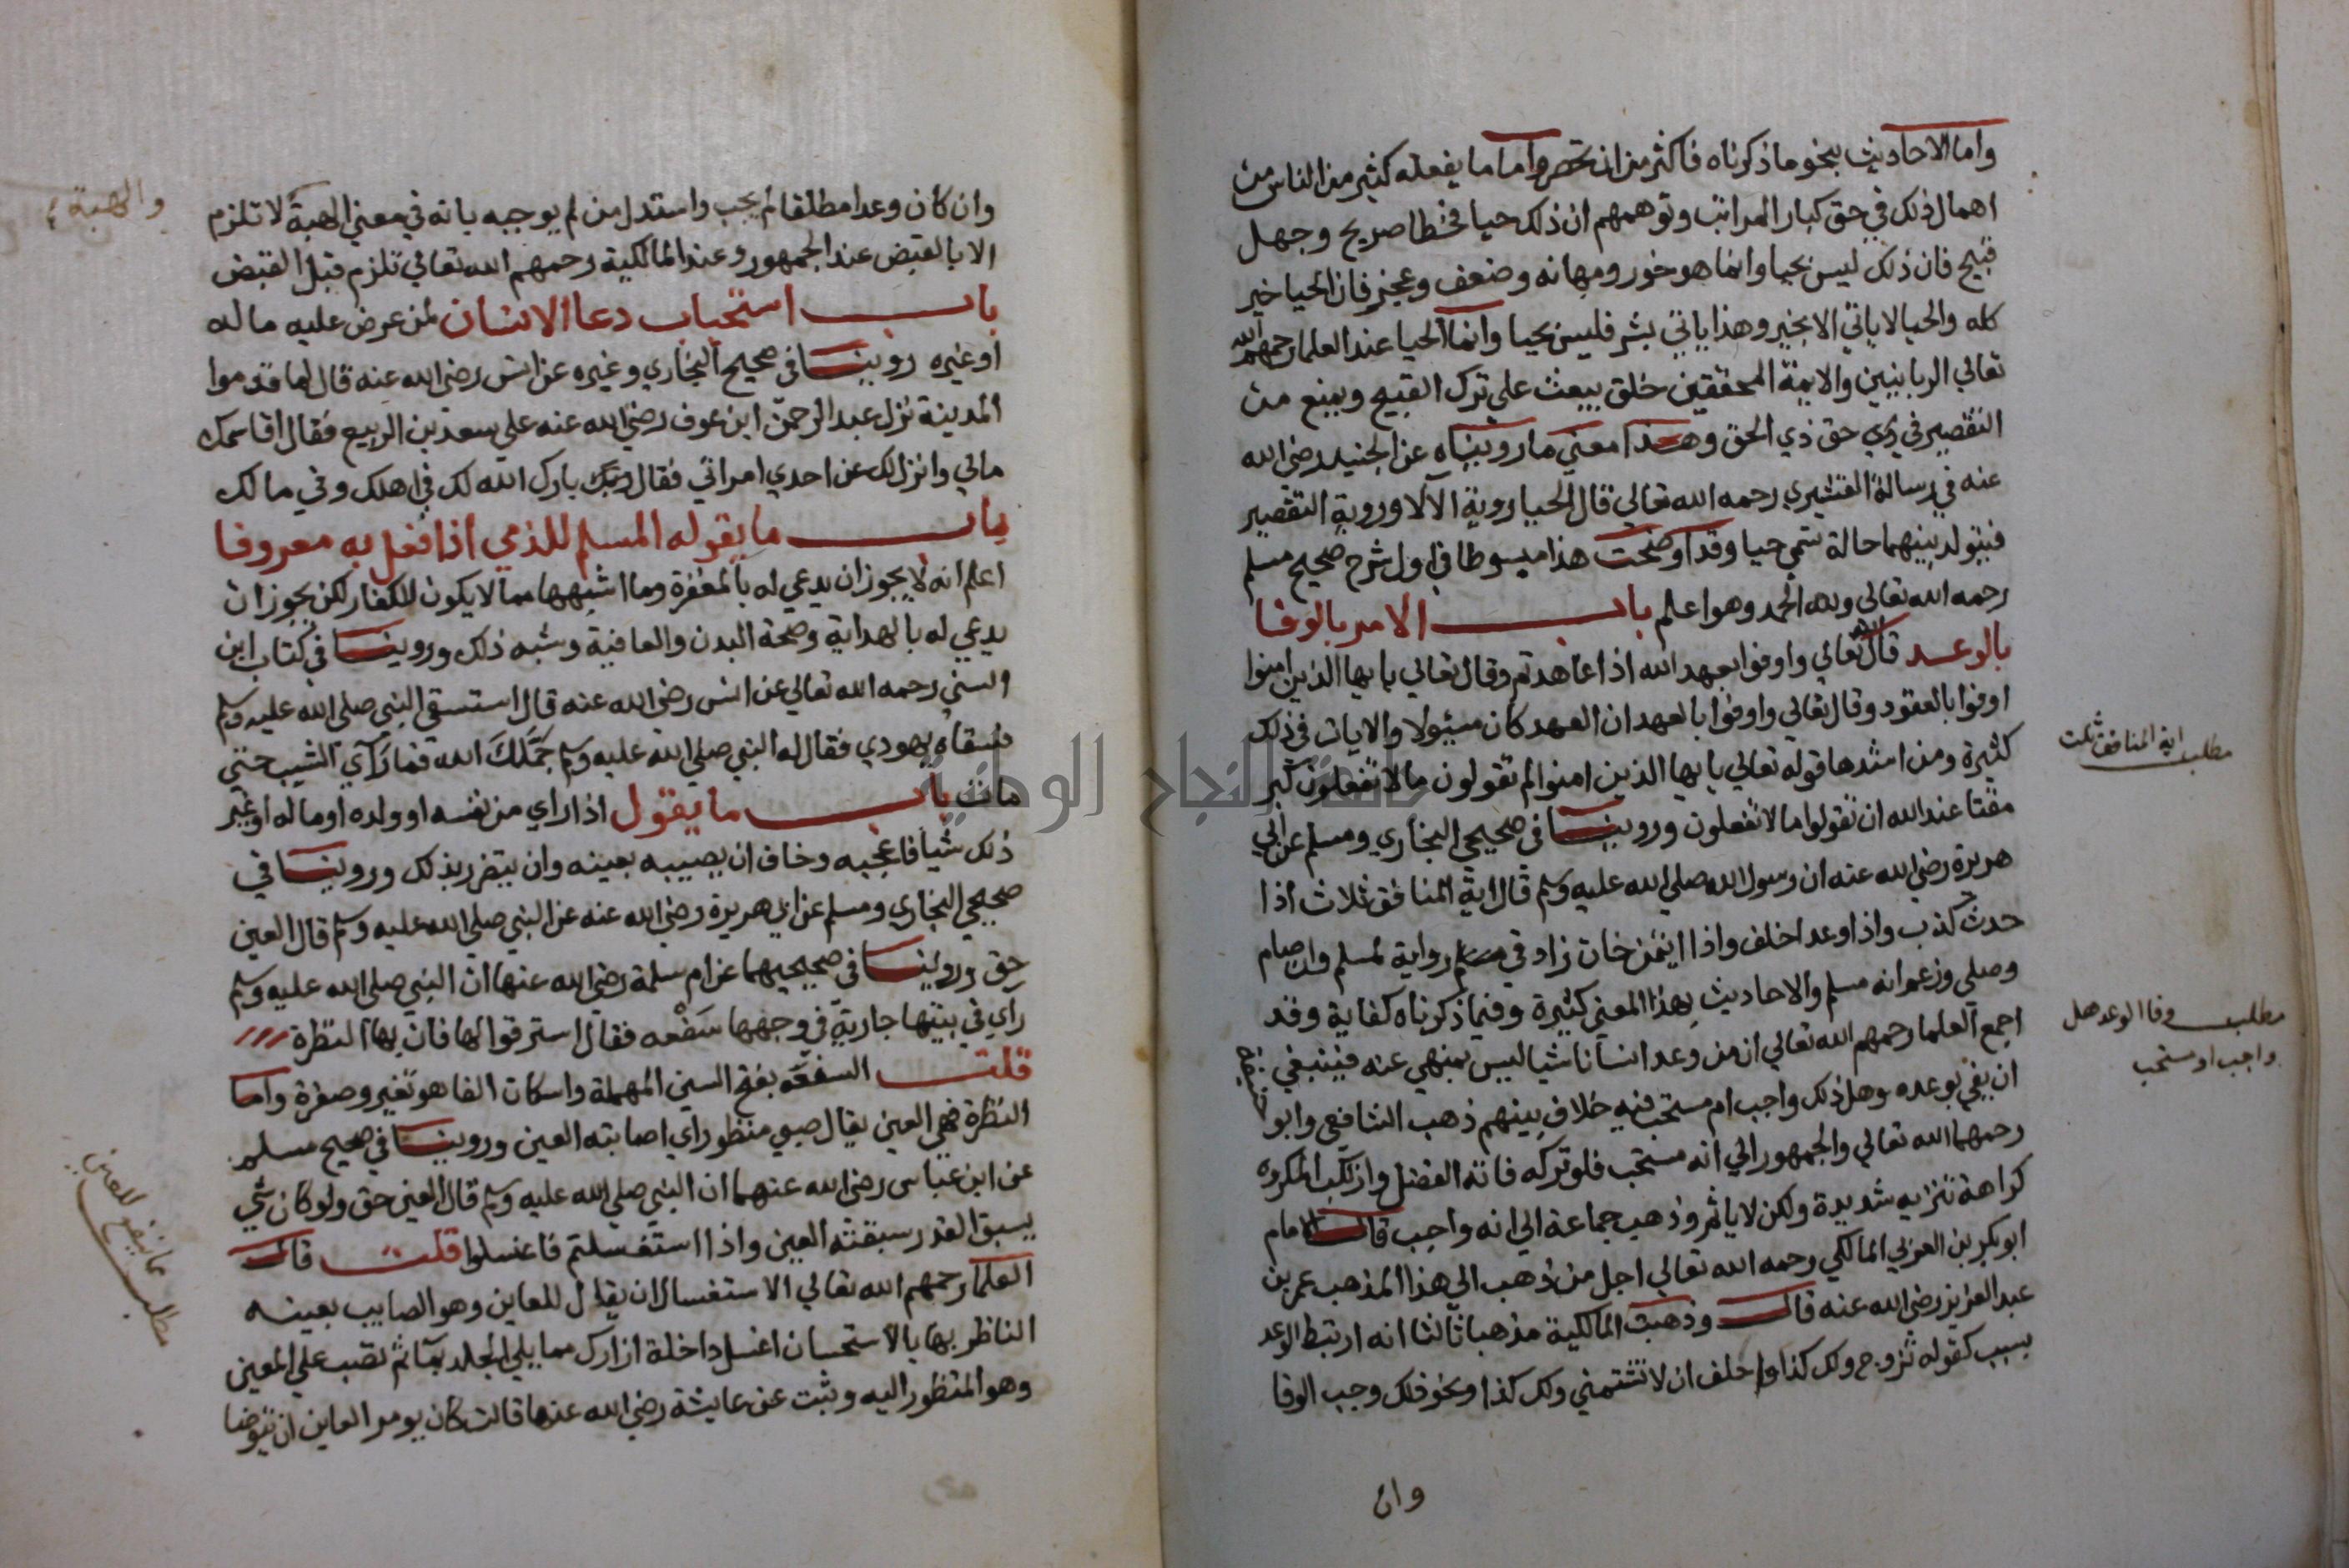 واما الاحاديث بنحو ما ذكرناه فاكثر من ان تحصر واما ما يفعله كثير من الناس من
اهمال ذلك في حق كبار المراتب وتوهمهم ان ذلك حيا فخطا صريح وجهل
قبيح فان ذلك ليس بحيا وانما هو خور ومهانه وضعف وعجز فان الحيا خير
كله والحيا لا ياتي الا بخير وهذا ياتي بشر فليس بحيا وانما الحيا عند العلما رحمهم الله
تعالي الربانيين والايمة المحققين خلق يبعث علي ترك القبيح ويمنع من
التقصير في ذي حق ذي الحق وهذا معني ما رويناه عن الجنيد رضي الله
عنه في رسالة القشيري رحمه الله تعالي قال الحيا روية الآلا وروية التقصير
فيتولد بينهما حالة تسمي حيا وقد اوضحت هذا مبسوطا في اول شرح صحيح مسلم
رحمه الله تعالي ولله الحمد وهو اعلم باب الامر بالوفا
بالوعد قال الله تعالي واوفوا بعهد الله اذا عاهدتم وقال تعالي يا يها الذين امنوا
اوفوا بالعقود وقال تعالي واوفوا بالعهد ان العهد كان مسيولا والايات في ذلك
كثيرة ومن اشدها قوله تعالي يا يها الذين امنوا لم تقولون ما لا تفعلون كبر
مقتا عند الله ان تقولوا ما لا تفعلون وروينا في صحيحي البخاري ومسلم عن ابي
هريرة رضي الله عنه ان رسول الله صلي الله عليه وسلم قال اية المنافق ثلاث اذا
حدث كذب واذا وعد اخلف واذا ايتمن خان زاد في رواية لمسلم وان صام
وصلي وزعم انه مسلم والاحاديث بهذا المعني كثيرة وفيما ذكرناه كفاية وقد
اجمع العلما رحمهم الله تعالي ان من وعد انسانا شيا ليس بمنهي عنه فينبغي
ان يفي بوعده وهل ذلك واجب ام مستحب فيه خلاف بينهم ذهب الشافعي وابو
رحمهما الله تعالي والجمهور الي انه مستحب فلو تركه فاته الفضل وارتكب المكروه
كراهة تنزيه شديدة ولكن لا ياثم وذهب جماعة الي انه واجب قال الامام
ابو بكر بن العربي المالكي رحمه الله تعالي اجل من ذهب الي هذا المذهب عمر بن
عبد العزيز رضي الله عنه قال وذهبت المالكية مذهبا ثالثا انه ارتبط الوعد
بسبب كقوله تزوج ولك كذا واحلف ان لا تشتمني ولك كذا او نحو ذلك وجب الوفا
وان
مطلب اية المنافق ثلث
مطلب وفا الوعد هل
واجب او مستحب
وان كان وعدا مطلقا لم يجب واستدل من لم يوجبه بانه في معني الهبة لا تلزم
الا بالقبض عند الجمهور وعند المالكية رحمهم الله تعالي تلزم قبل القبض
باب استحباب دعا الانسان لمن عرض عليه ماله
او غيره روينا في صحيح البخاري وغيره عن انس رضي الله عنه قال لما قدموا
المدينة نزل عبد الرحمن ابن عوف رضي الله عنه علي سعد بن الربيع فقال اقاسمك
مالي وانزل لك عن احدي امراتي فقال بارك الله لك في اهلك وفي مالك
باب ما يقوله المسلم للذمي اذا فعل به معروفا
اعلم انه لا يجوز ان يدعي له بالمغفرة وما اشبهها مما لا يكون للكفار لكن يجوز ان
يدعي له بالهداية وصحة البدن والعافية وشبه ذلك وروينا في كتاب ابن
السني رحمه الله تعالي عن انس رضي الله عنه قال استسقي النبي صلي الله عليه وسلم
فسقاه يهودي فقال له النبي صلي الله عليه وسلم جَمَّلَكَ الله فما رَآي الشيب حتي
مات باب ما يقول اذا راي من نفسه او ولده او ماله او غير
ذلك شيا فاعجبه وخاف ان يصيبه بعينه وان يتضرر بذلك وروينا في
صحيحي البخاري ومسلم عن ابي هريرة رضي الله عنه عن النبي صلي الله عليه وسلم قال العين
حق وروينا في صحيحيهما عن ام سلمة رضي الله عنها ان النبي صلي الله عليه وسلم
راي في بيتها جارية في وجهها سَفْعه فقال استرقوا لها فان بها النظرة
قلت السفعَه بفتح السين المهملة واسكان الفا هو تغير وصفرة واما
النظرة فهي العين يقال صبي منظور اي اصابته العين وروينا في صحيح مسلم
عن ابن عباس رضي الله عنهما ان النبي صلي الله عليه وسلم قال العين حق ولو كان شي
يسبق القدر سبقته العين واذا استغسلتم فاغسلوا قلت قال
العلما رحمهم الله تعالي الاستغسال ان يقال للعاين وهو الصايب بعينه
الناظر بها بالاستحسان اغسل داخلة ازارك مما يلي الجلد بما ثم تصب علي المعين
وهو المنظور اليه وثبت عن عايشة رضي الله عنها قالت كان يومر العاين ان يتوضا
والهبة
مطلب ما ينفع للعين
جامعة النجاح الوطنية